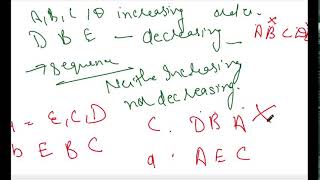 A, B, C is increasing order.
D B E – decreasing
A B C D E
→ Sequence
Neither Increasing
nor decreasing.
a = E, C, D
C. D B A X
b E B C
a. A E C